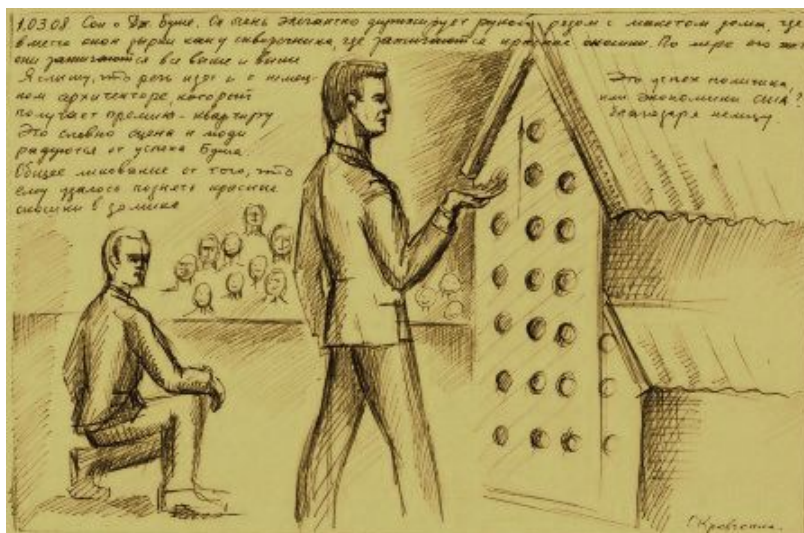 1.03.08 Сон о Дж. Буше. Он очень элегантно дирижирует рукой рядом с макетом дома, где
вместо окон дырки как у скворечника, где зажигаются красные окошки. По мере его
они зажигаются все выше и выше
Я слышу, что речь идет и о немец-
ком архитекторе, который
получает премию - квартиру
Это словно сцена и люди
радуются от успеха Буша.
Общее ликование от того, что
ему удалось поднять красные
окошки в домике
Это успех политика,
или экономики США?
благодаря немцу.
Кравченко